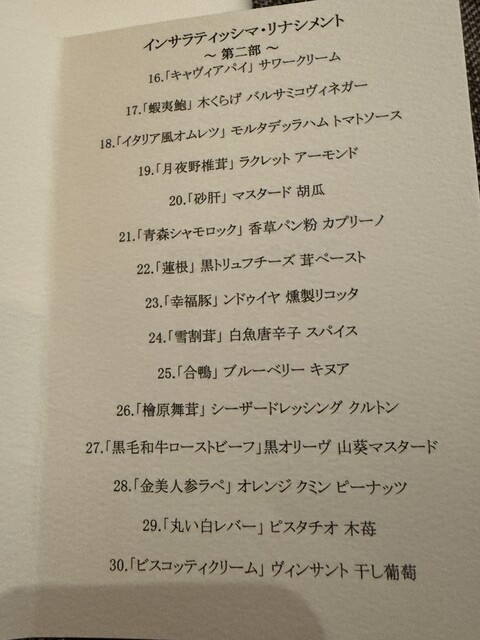 インサラティッシマ・リナシメント
～ 第二部 ～
16.「キャヴィアパイ」 サワークリーム
17.「蝦夷鮑」 木くらげ バルサミコヴィネガー
18.「イタリア風オムレツ」 モルタデッラハム トマトソース
19.「月夜野椎茸」 ラクレット アーモンド
20.「砂肝」 マスタード 胡瓜
21.「青森シャモロック」 香草パン粉 カプリーノ
22.「蓮根」 黒トリュフチーズ 茸ペースト
23.「幸福豚」 ンドゥイヤ 燻製リコッタ
24.「雪割茸」 白魚唐辛子 スパイス
25.「合鴨」 ブルーベリー キヌア
26.「檜原舞茸」 シーザードレッシング クルトン
27.「黒毛和牛ローストビーフ」黒オリーヴ 山葵マスタード
28.「金美人参ラペ」 オレンジ クミン ピーナッツ
29.「丸い白レバー」 ピスタチオ 木苺
30.「ビスコッティクリーム」 ヴィンサント 干し葡萄